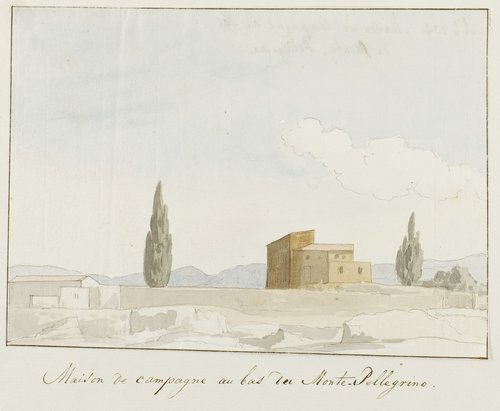 Maison de campagne au bas du Monte-Pellegrino.